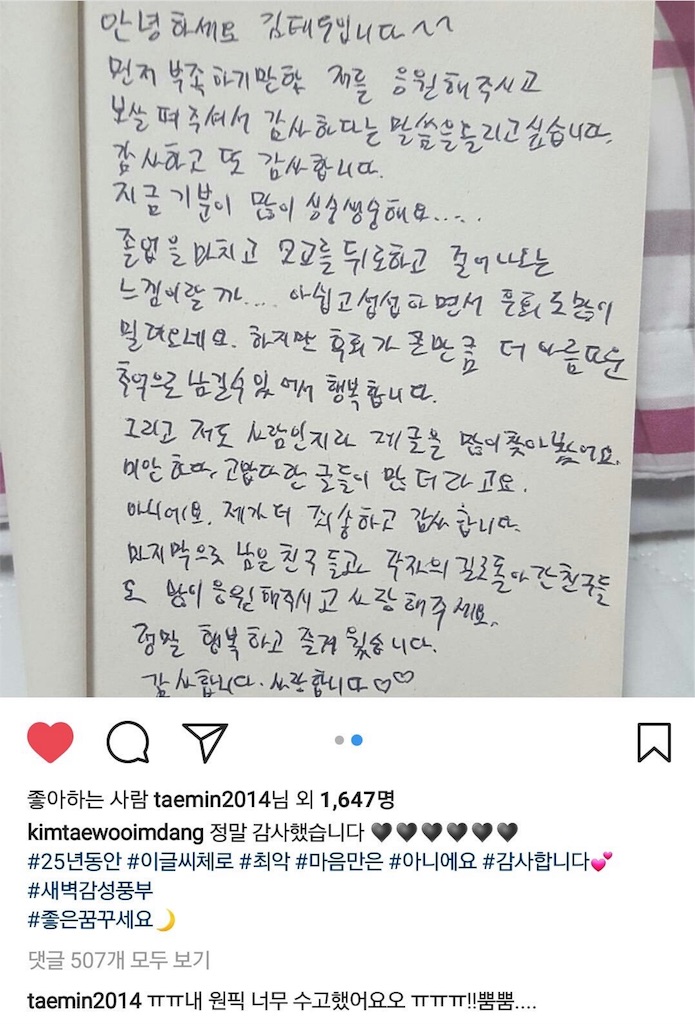 안녕하세요 김태우입니다^^
먼저 부족하기만한 저를 응원해주시고
보살펴주셔서 감사하다는 말씀을드리고싶습니다.
감사하고 또 감사합니다.
지금 기분이 많이 싱숭생숭해요....
졸업을 마치고 모교를 뒤로하고 걸어나오는
느낌이랄까.... 아쉽고섭섭하면서 후회도많이
밀려오네요. 하지만 후회가 큰만큼 더 아름다운
추억으로 남길수 있어서 행복합니다.
그리고 저도 사람인지라 제글을 많이찾아봤어요.
미안하다, 고맙다란 글들이 많더라고요.
아니에요. 제가더 죄송하고 감사합니다.
마지막으로 남은친구들과 각자의 길로돌아간친구들
도 많이 응원해주시고 사랑해주세요.
정말 행복하고 즐거웠습니다.
감사합니다. 사랑합니다♡♡
좋아하는 사람 taemin2014님 외 1,647명
kimtaewooimdang 정말 감사했습니다 🖤🖤🖤🖤🖤🖤
#25년동안 #이글씨체로 #최악 #마음만은 #아니에요 #감사합니다💕
#새벽감성풍부
#좋은꿈꾸세요🌙
댓글 507개 모두 보기
taemin2014 ㅠㅠ내 원픽 너무 수고했어요오 ㅠㅠㅠ!!뿜뿜....